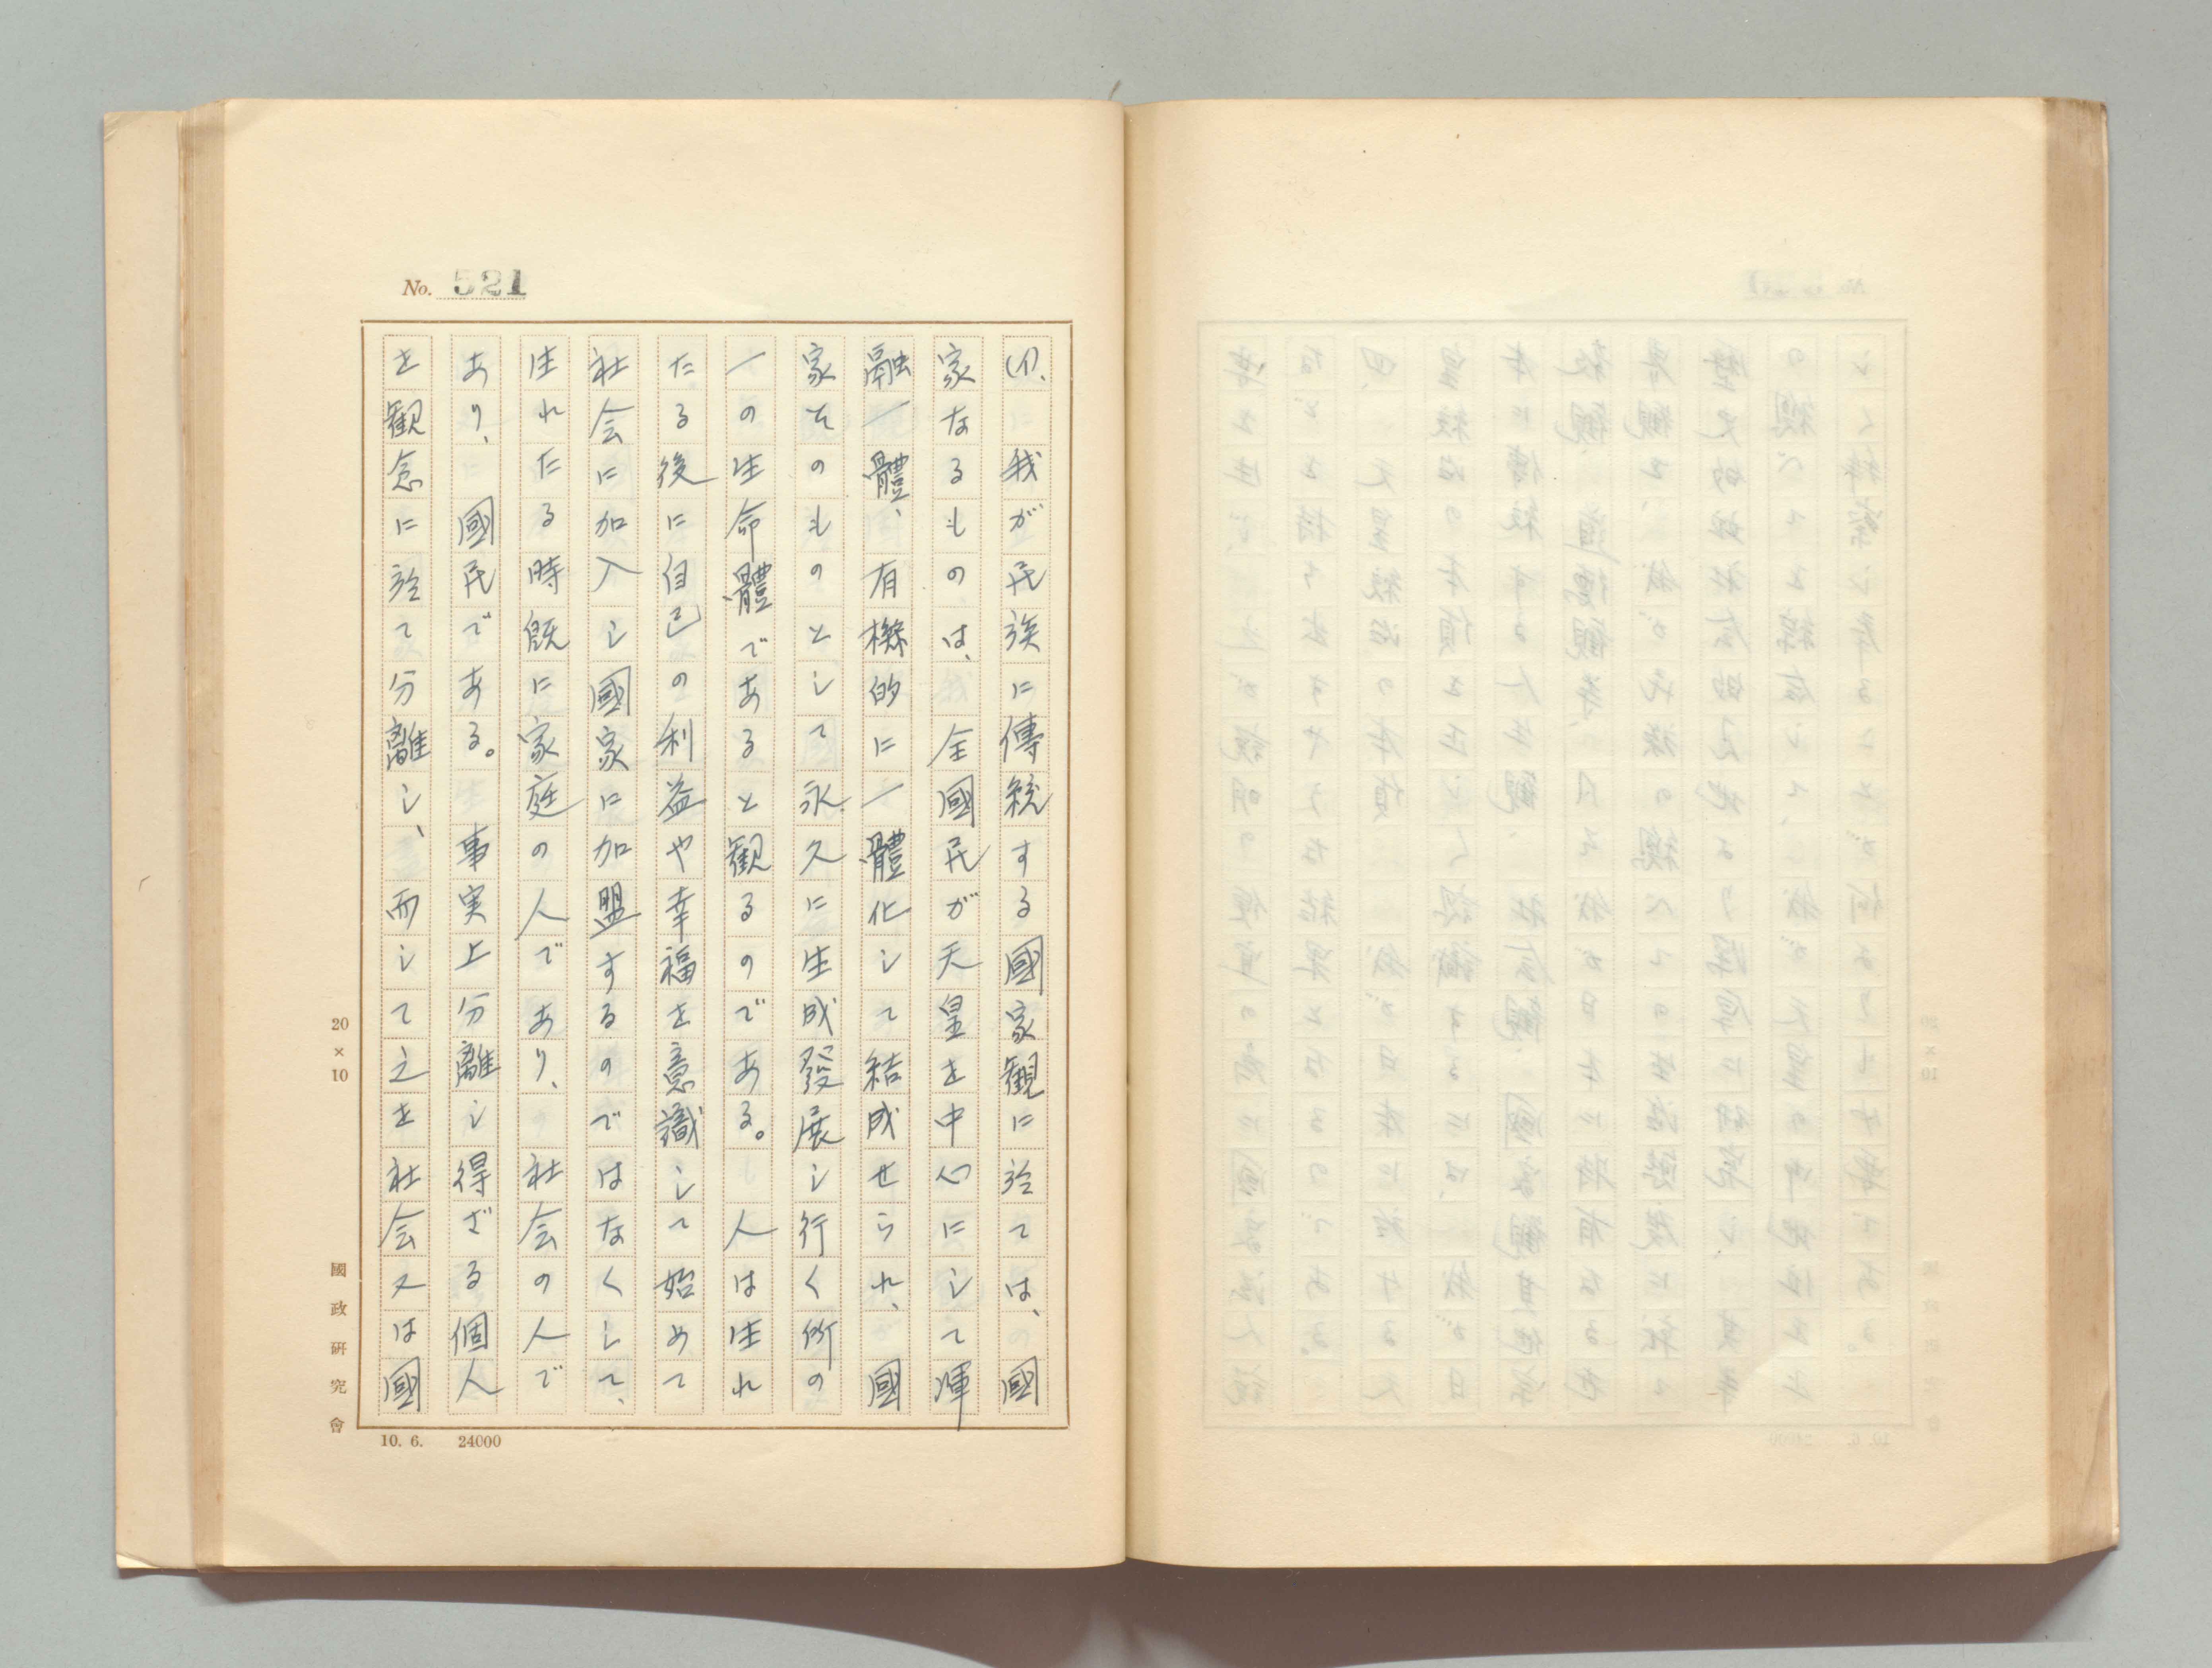 No. 521
(イ)、我が民族に傳統する國家観に於ては、國
家なるものは、全國民が天皇を中心にして渾
融一體、有機的に一體化して結成せられ、國
家そのものとして永久に生成發展し行く所の
一の生命體であると観るのである。人は生れ
たる後に自己の利益や幸福を意識して始めて
社会に加入し國家に加盟するのではなくして、
生れたる時既に家庭の人であり、社会の人で
あり、國民である。事実上分離し得ざる個人
を観念に於て分離し、而して之を社会又は國
20×10
國政研究會
10. 6. 24000